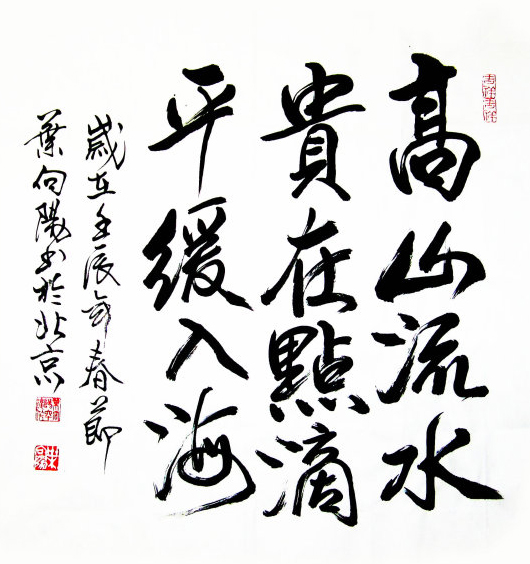 高山流水
貴在點滴
平緩入海
歲在壬辰年春節
葉向陽書於北京